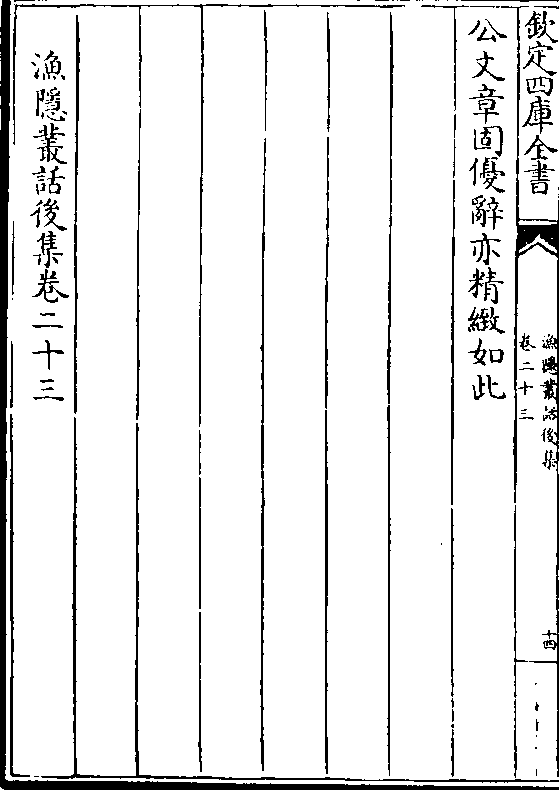 欽定四庫全書
漁隱叢話後集
卷二十三
十四
公文章固優辭亦精緻如此
漁隱叢話後集卷二十三